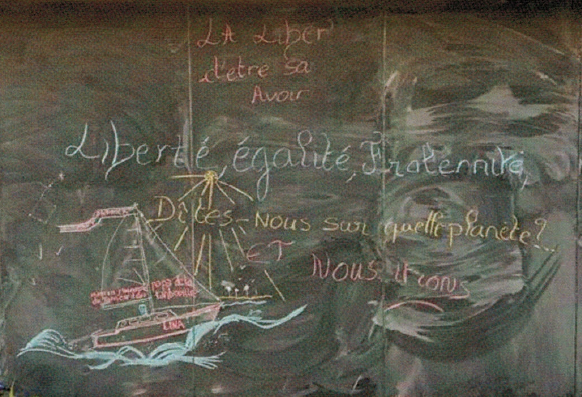 LA Liber
d'être sa
Avoir
Liberté, égalité, Fraternité,
Dites-Nous sur quelle planete?..
ET Nous irons
papa de la
LINA